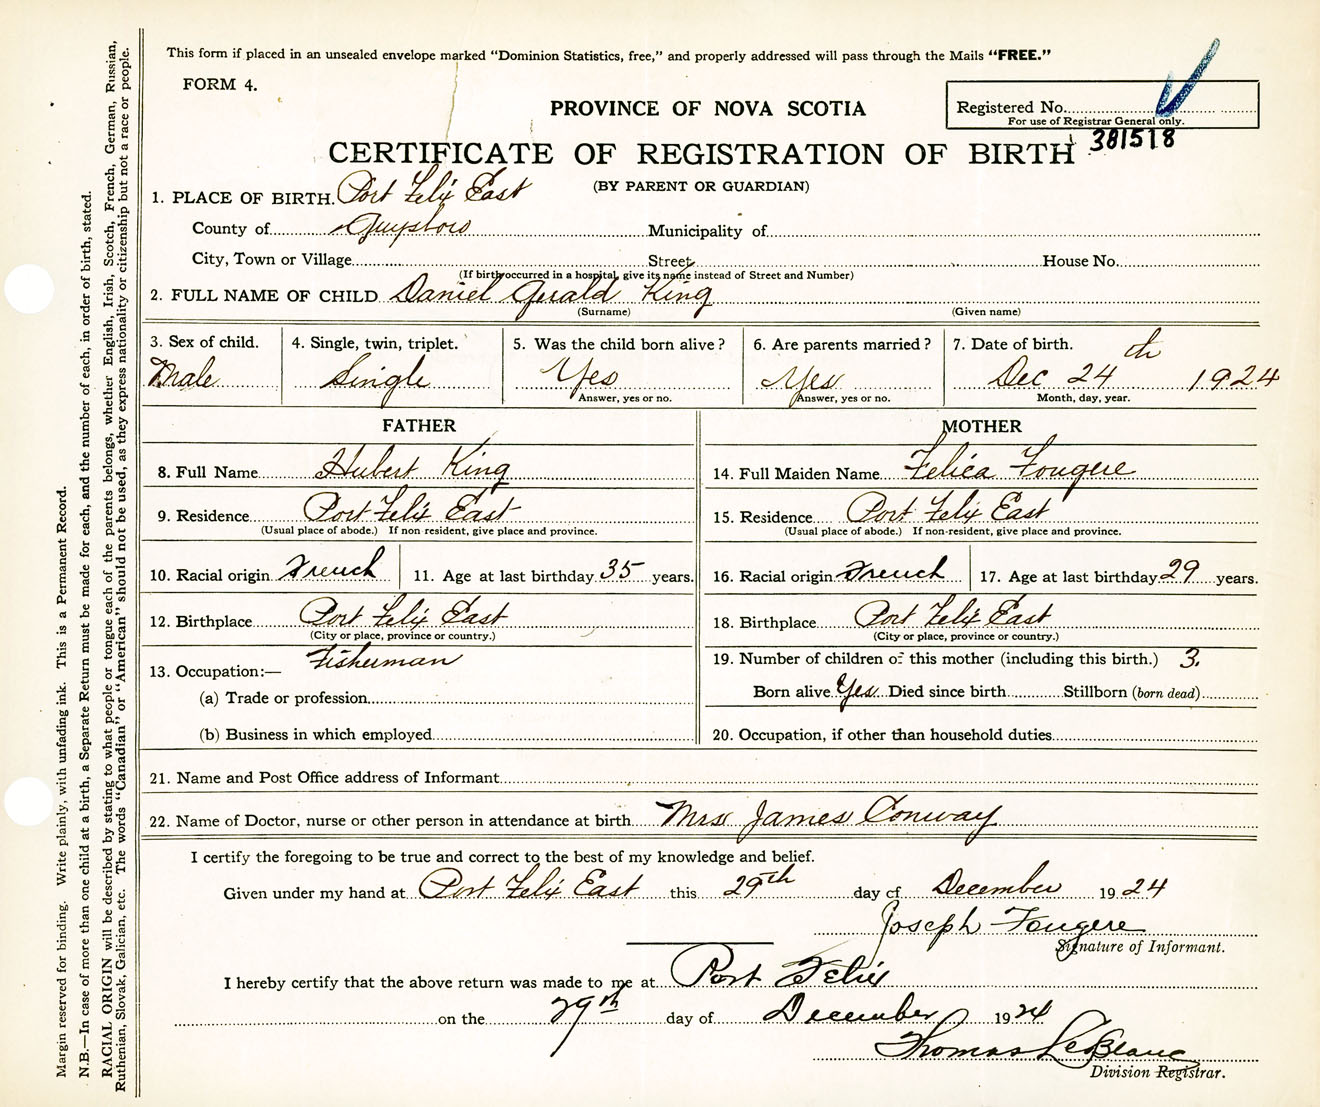 This form if placed in an unsealed envelope marked "Dominion Statistics, free," and properly addressed will pass through the Mails "FREE."
FORM 4.
Registered No.
For use of Registrar General only.
381518
PROVINCE OF NOVA SCOTIA
CERTIFICATE OF REGISTRATION OF BIRTH
(BY PARENT OR GUARDIAN)
1. PLACE OF BIRTH. Port Felix East
County of Guysboro Municipality of
City, Town or Village Street House No.
(If birth occurred in a hospital, give its name instead of Street and Number)
2. FULL NAME OF CHILD Daniel Gerald King
(Surname) (Given name)
3. Sex of child. 4. Single, twin, triplet. 5. Was the child born alive? 6. Are parents married? 7. Date of birth.
Male Single Yes Yes Dec 24th 1924
Answer, yes or no. Answer, yes or no. Month, day, year.
FATHER MOTHER
8. Full Name Hubert King 14. Full Maiden Name Felica Fougere
9. Residence Port Felix East 15. Residence Port Felix East
(Usual place of abode.) If non-resident, give place and province. (Usual place of abode.) If non-resident, give place and province.
10. Racial origin French 11. Age at last birthday 35 years. 16. Racial origin French 17. Age at last birthday 29 years.
12. Birthplace Port Felix East 18. Birthplace Port Felix East
(City or place, province or country.) (City or place, province or country.)
13. Occupation:— Fisherman 19. Number of children of this mother (including this birth.) 3.
(a) Trade or profession Born alive Yes Died since birth Stillborn (born dead)
(b) Business in which employed 20. Occupation, if other than household duties
21. Name and Post Office address of Informant
22. Name of Doctor, nurse or other person in attendance at birth Mrs James Conway
I certify the foregoing to be true and correct to the best of my knowledge and belief.
Given under my hand at Port Felix East this 29th day of December 1924
Joseph Fougere
Signature of Informant.
I hereby certify that the above return was made to me at Port Felix
on the 29th day of December 1924
Thomas LeBlanc
Division Registrar.
Margin reserved for binding. Write plainly, with unfading ink. This is a Permanent Record.
N.B.—In case of more than one child at a birth, a Separate Return must be made for each, and the number of each, in order of birth, stated.
RACIAL ORIGIN will be described by stating to what people or tongue each of the parents belongs, whether English, Irish, Scotch, French, German, Russian,
Ruthenian, Slovak, Galician, etc. The words "Canadian" or "American" should not be used, as they express nationality or citizenship but not a race or people.